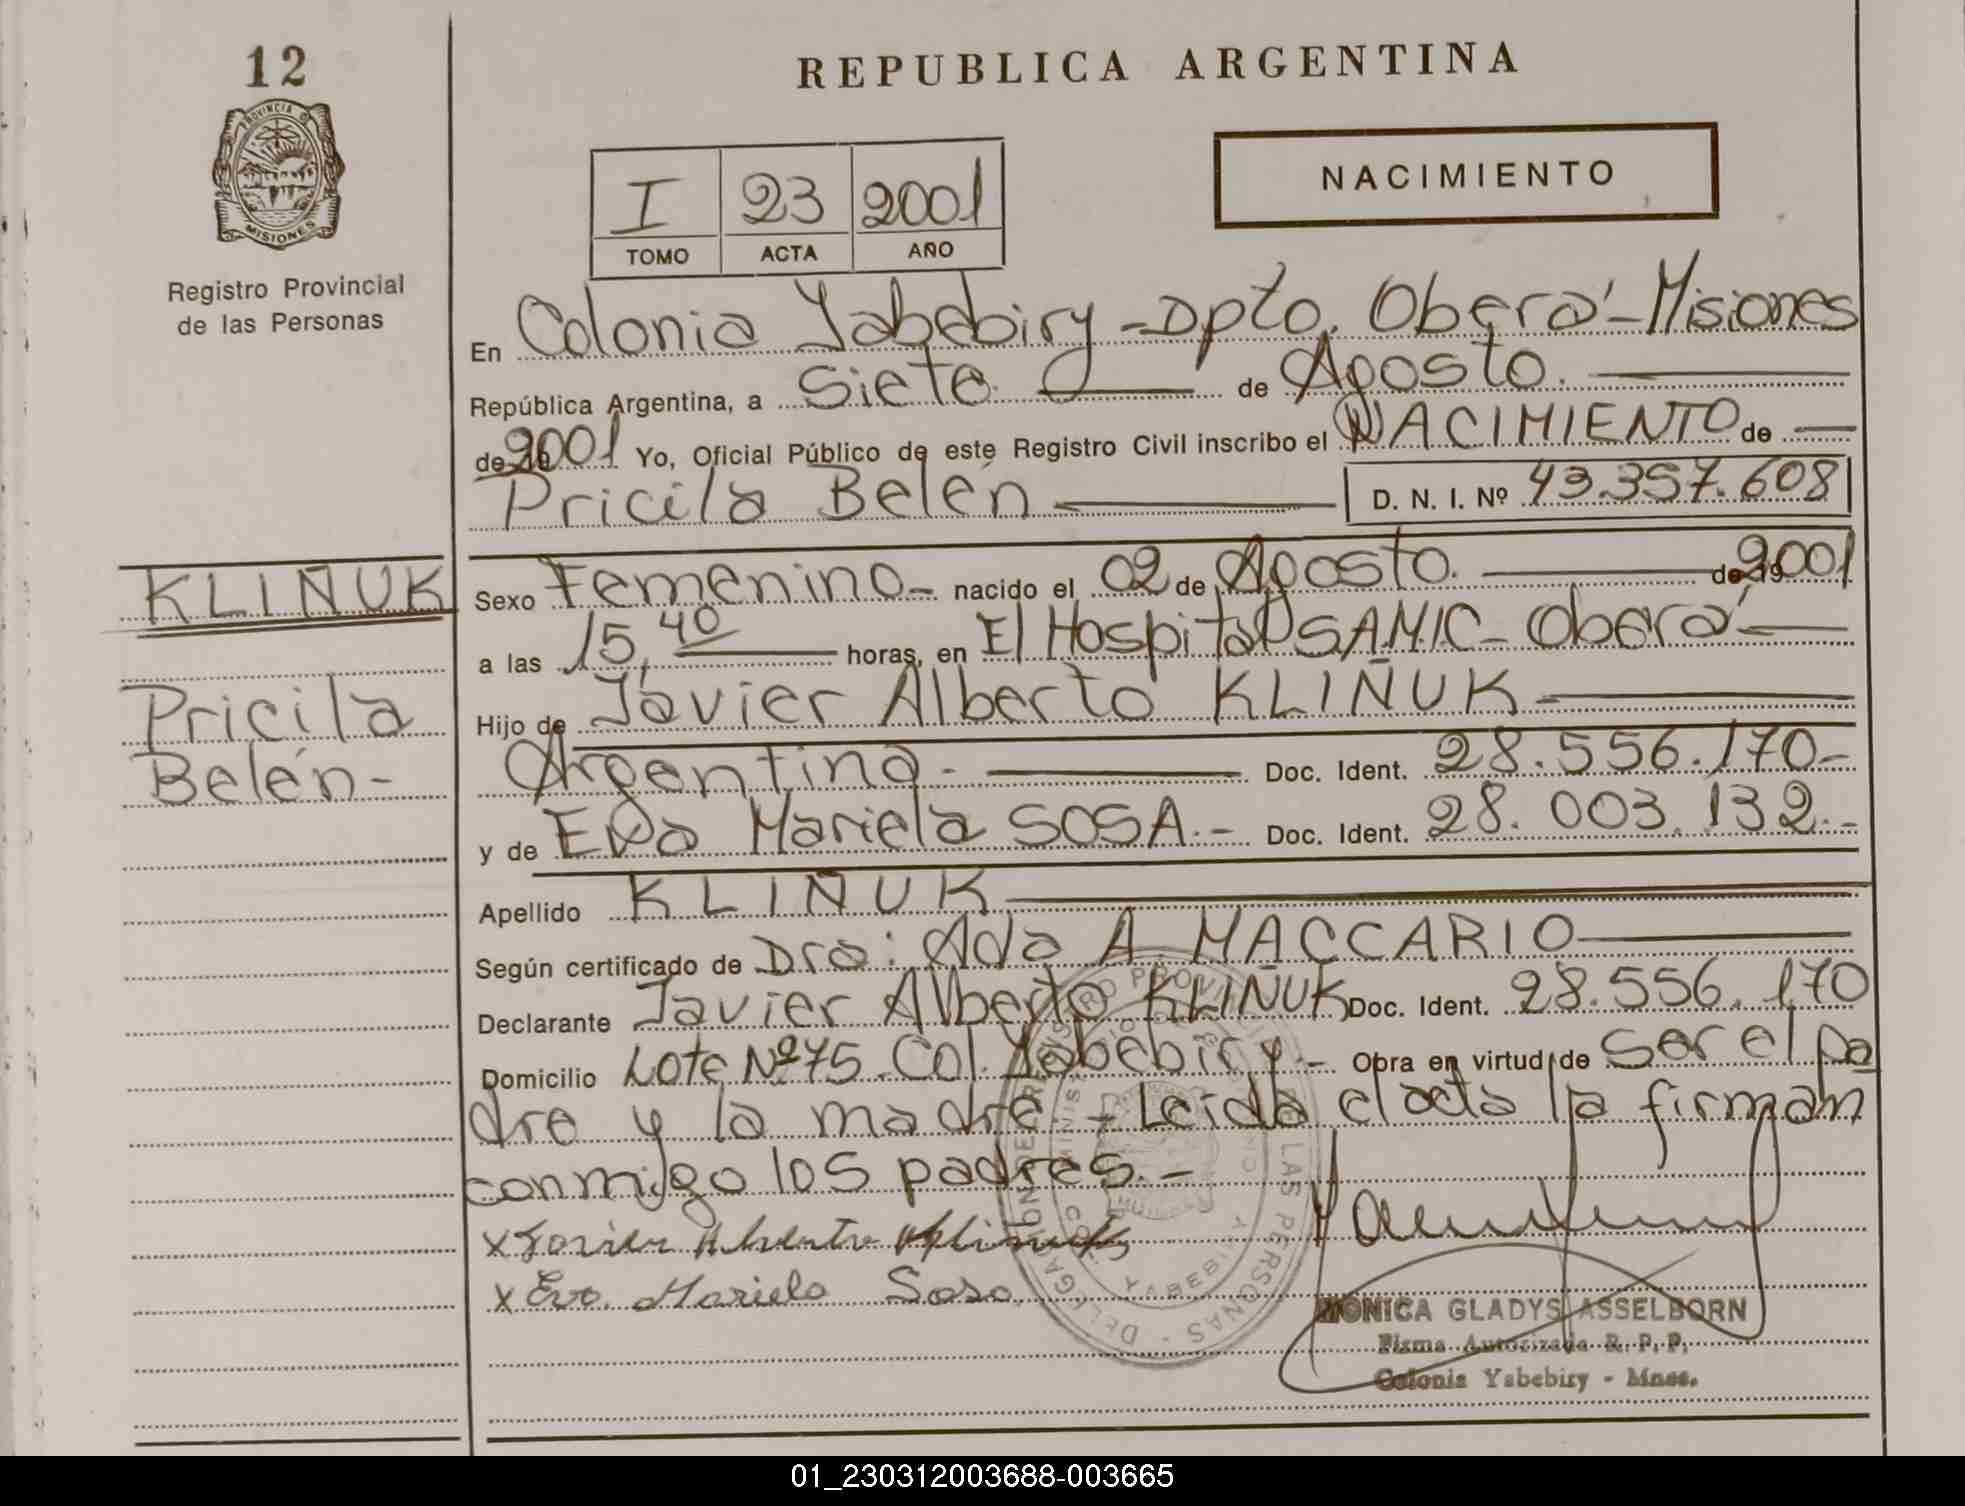 12
PROVINCIA DE
MISIONES
Registro Provincial
de las Personas
REPUBLICA ARGENTINA
I 23 2001
TOMO ACTA AÑO
NACIMIENTO
En Colonia Yabebiry - Dpto. Oberá - Misiones
República Argentina, a Siete de Agosto.
de 2001 Yo, Oficial Público de este Registro Civil inscribo el NACIMIENTO de
Pricila Belén D. N. I. Nº 43.357.608
KLIÑUK
Pricila
Belén-
Sexo Femenino - nacido el 02 de Agosto. de 2001
a las 15,40 horas, en El Hospital SAMIC - Oberá -
Hijo de Javier Alberto KLIÑUK -
Argentina - Doc. Ident. 28.556.170-
y de Eva Mariela SOSA.- Doc. Ident. 28.003.132.-
Apellido KLIÑUK
Según certificado de Dra: Ada A. MACCARIO
Declarante Javier Alberto KLIÑUK Doc. Ident. 28.556.170
Domicilio Lote Nº 75 - Col. Yabebiry - Obra en virtud de ser el pa
dre y la madre - Leida el acta la firman
conmigo los padres.-
x Javier Alberto Kliñuk
x Eva Mariela Sosa
MONICA GLADYS ASSELBORN
Firma Autorizada R. P. P.
Colonia Yabebiry - Mnes.
01_230312003688-003665